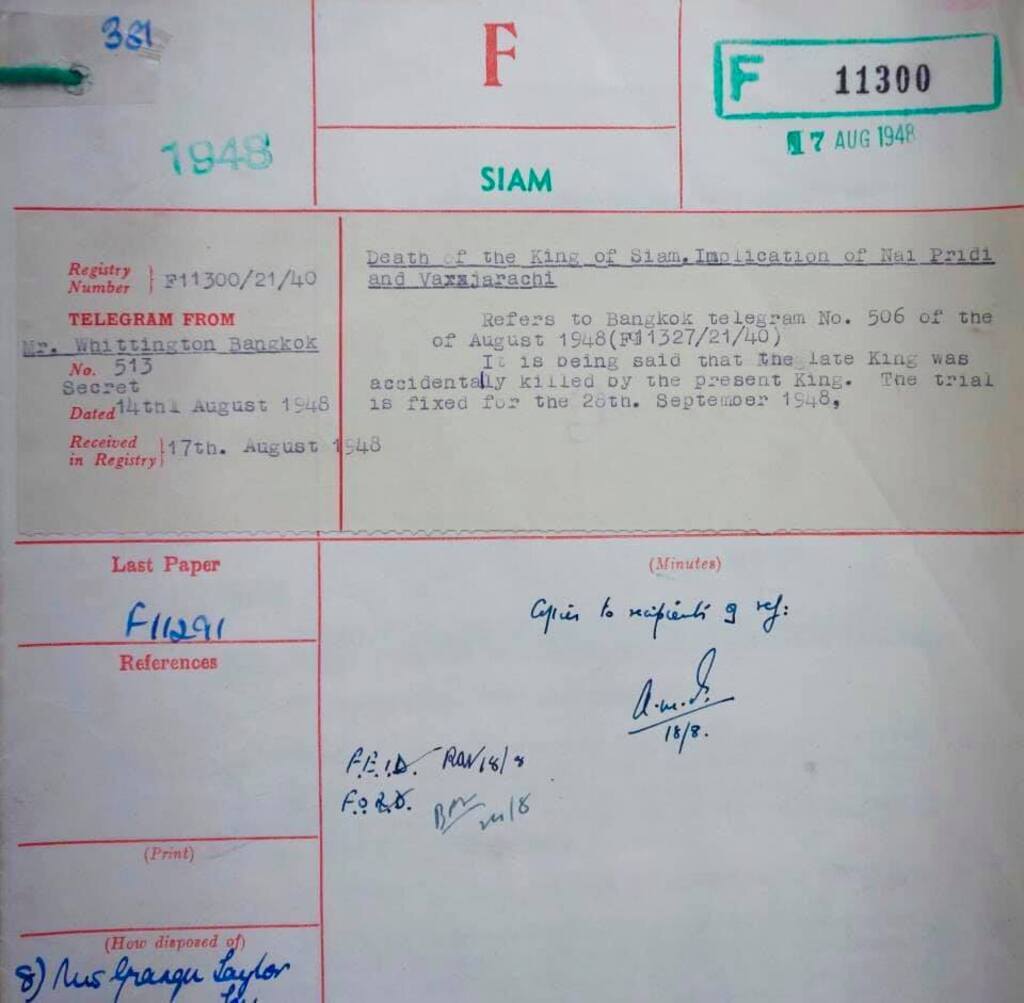 381
F
F 11300
17 AUG 1948
1948
SIAM
Registry
Number } F11300/21/40
TELEGRAM FROM
Mr. Whittington Bangkok
No. 513
Secret
Dated 14th August 1948
Received
in Registry } 17th. August 1948
Death of the King of Siam. Implication of Nai Pridi
and Vaxxjarachi
Refers to Bangkok telegram No. 506 of the
of August 1948(F11327/21/40)
It is being said that the late King was
accidentally killed by the present King. The trial
is fixed for the 28th. September 1948,
Last Paper
F11291
References
(Print)
(How disposed of)
8) Mrs Grange Taylor
(Minutes)
Copies to recipients of ref:
18/8.
F.E.I.D. 18/8
F.O.R.D.